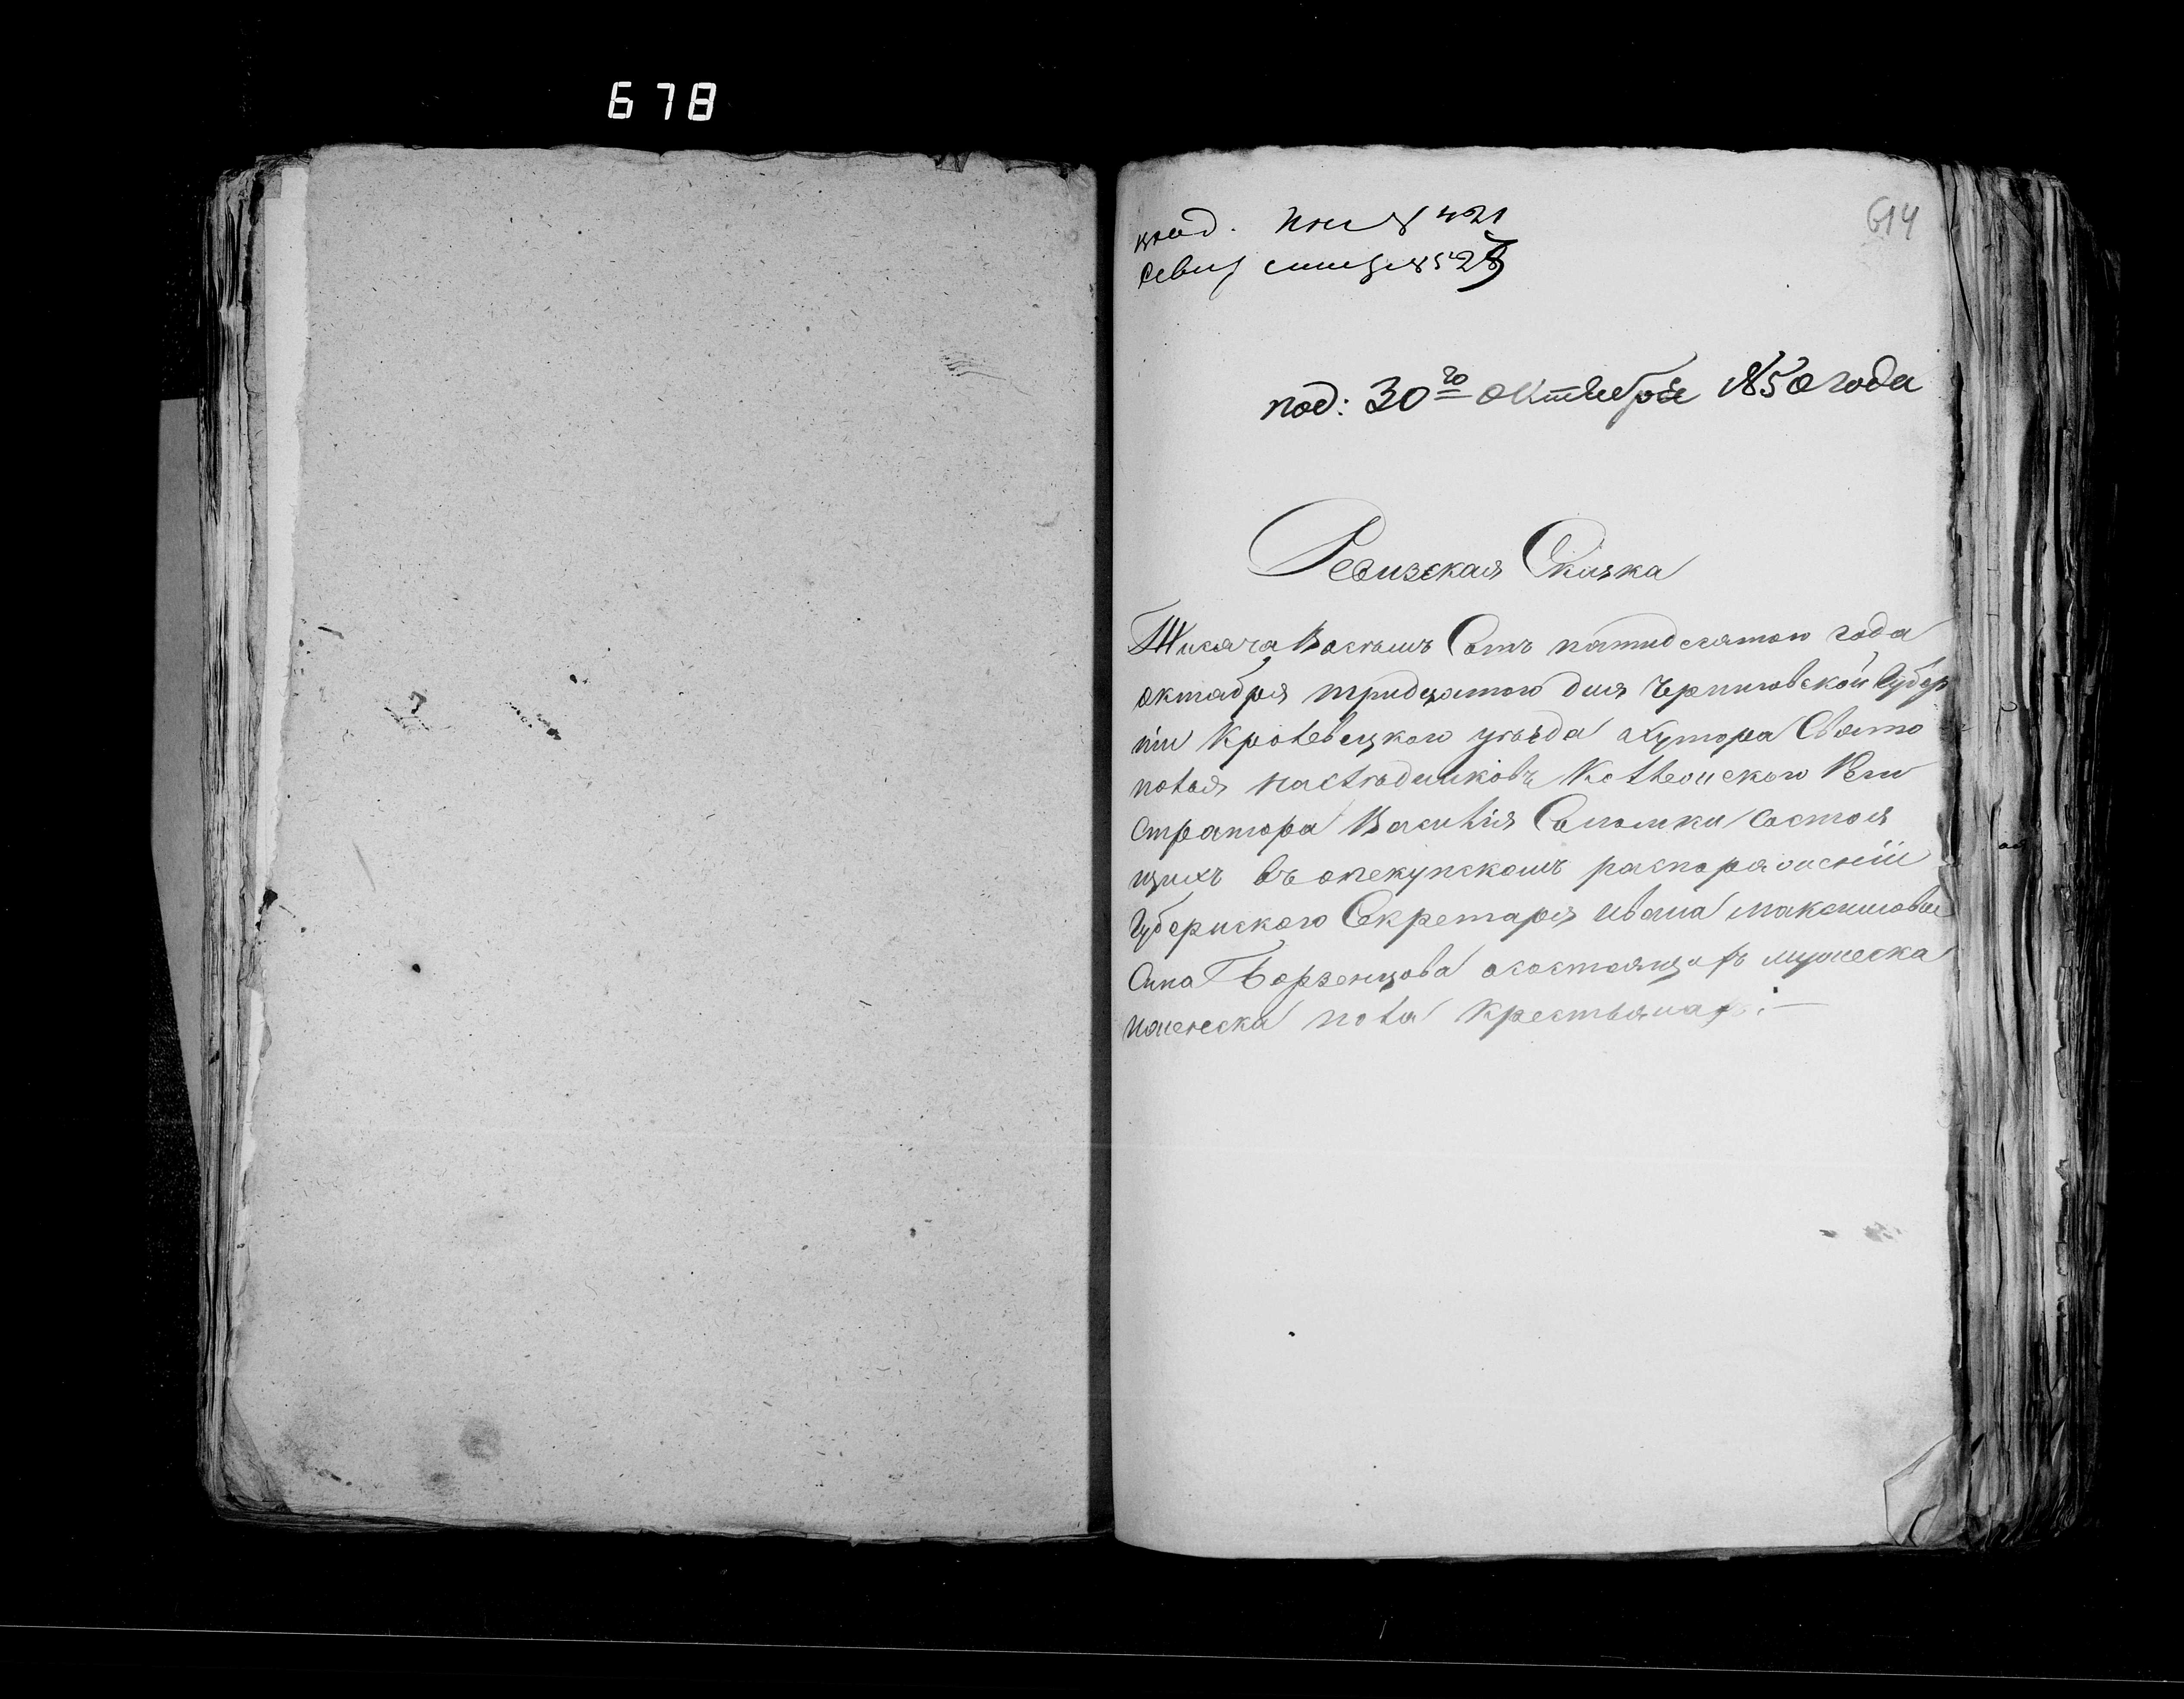 678
614
под: 30го октебря 1850 года
Ревизская Сказка
Тисяча Восемъ Сотъ пятидесятою года
октабря тридцатого дня Черниговской Губер
ніи Кролевецкого уезда Хутора Свято
полья наследниковъКоллежского Реги
Стратора Василія Сымоики Состоя
щихъ въ опекунскомъ распоряженіи
Губернского Секретаря Ивана Максимова
Сина Борзенцова осостоящихъ мужеска
иженска пола Крестьянахъ:—